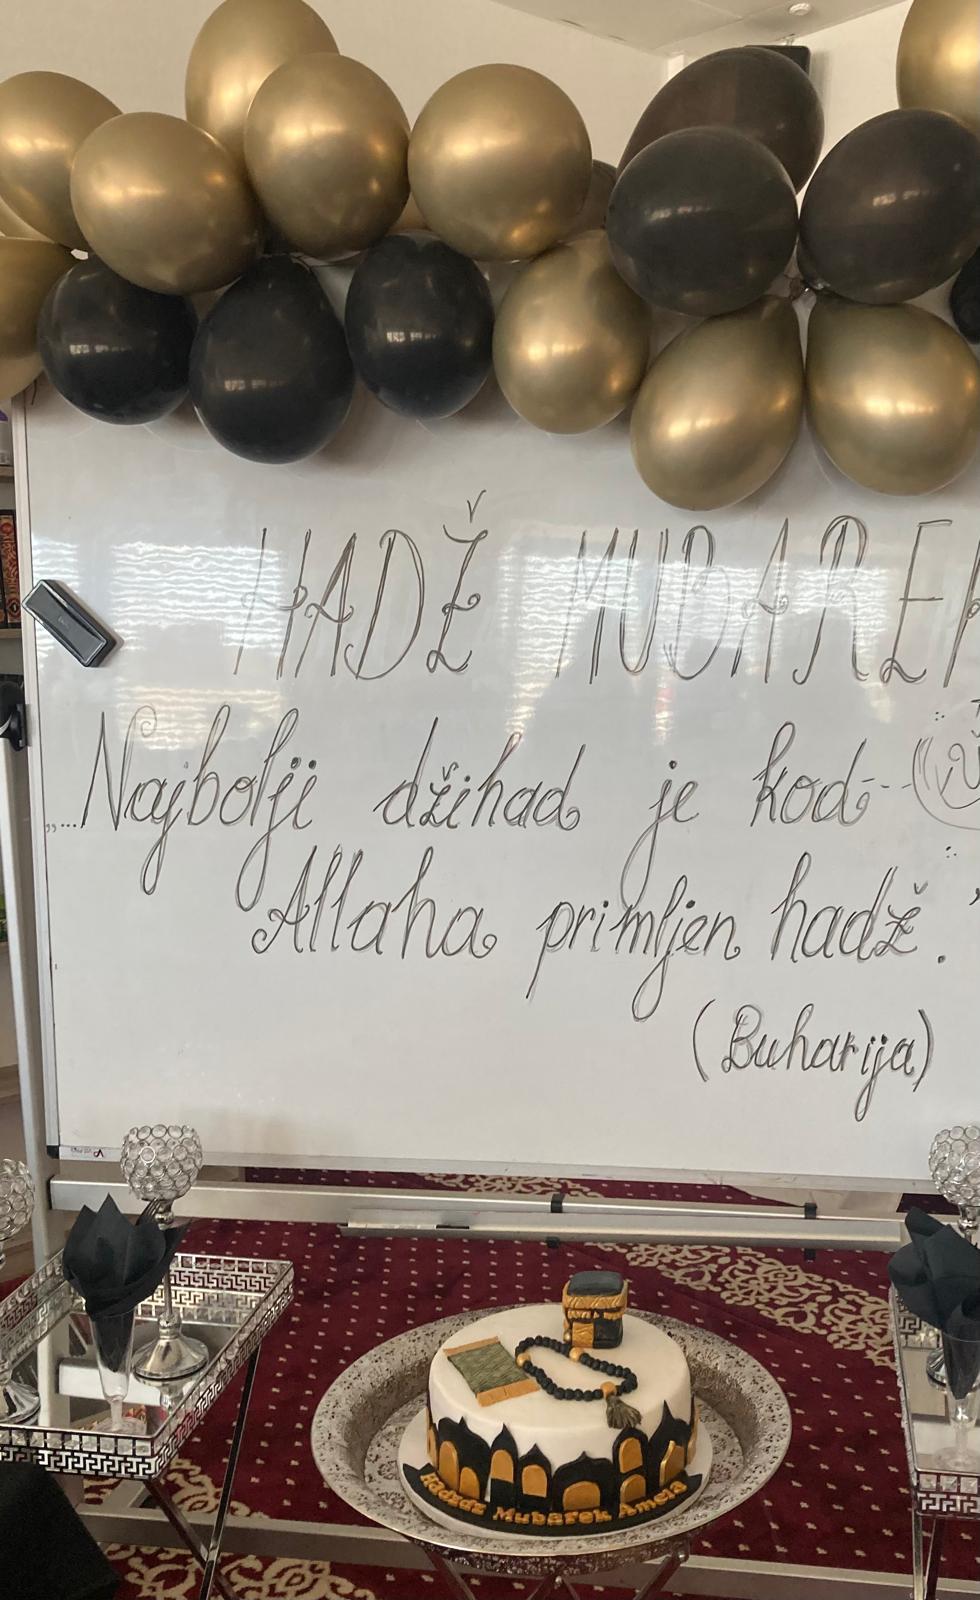 HADŽ MUBAREK
„...Najbolji džihad je kod
Allaha primljen hadž."
(Buharija)
Hadždž Mubarek Amela